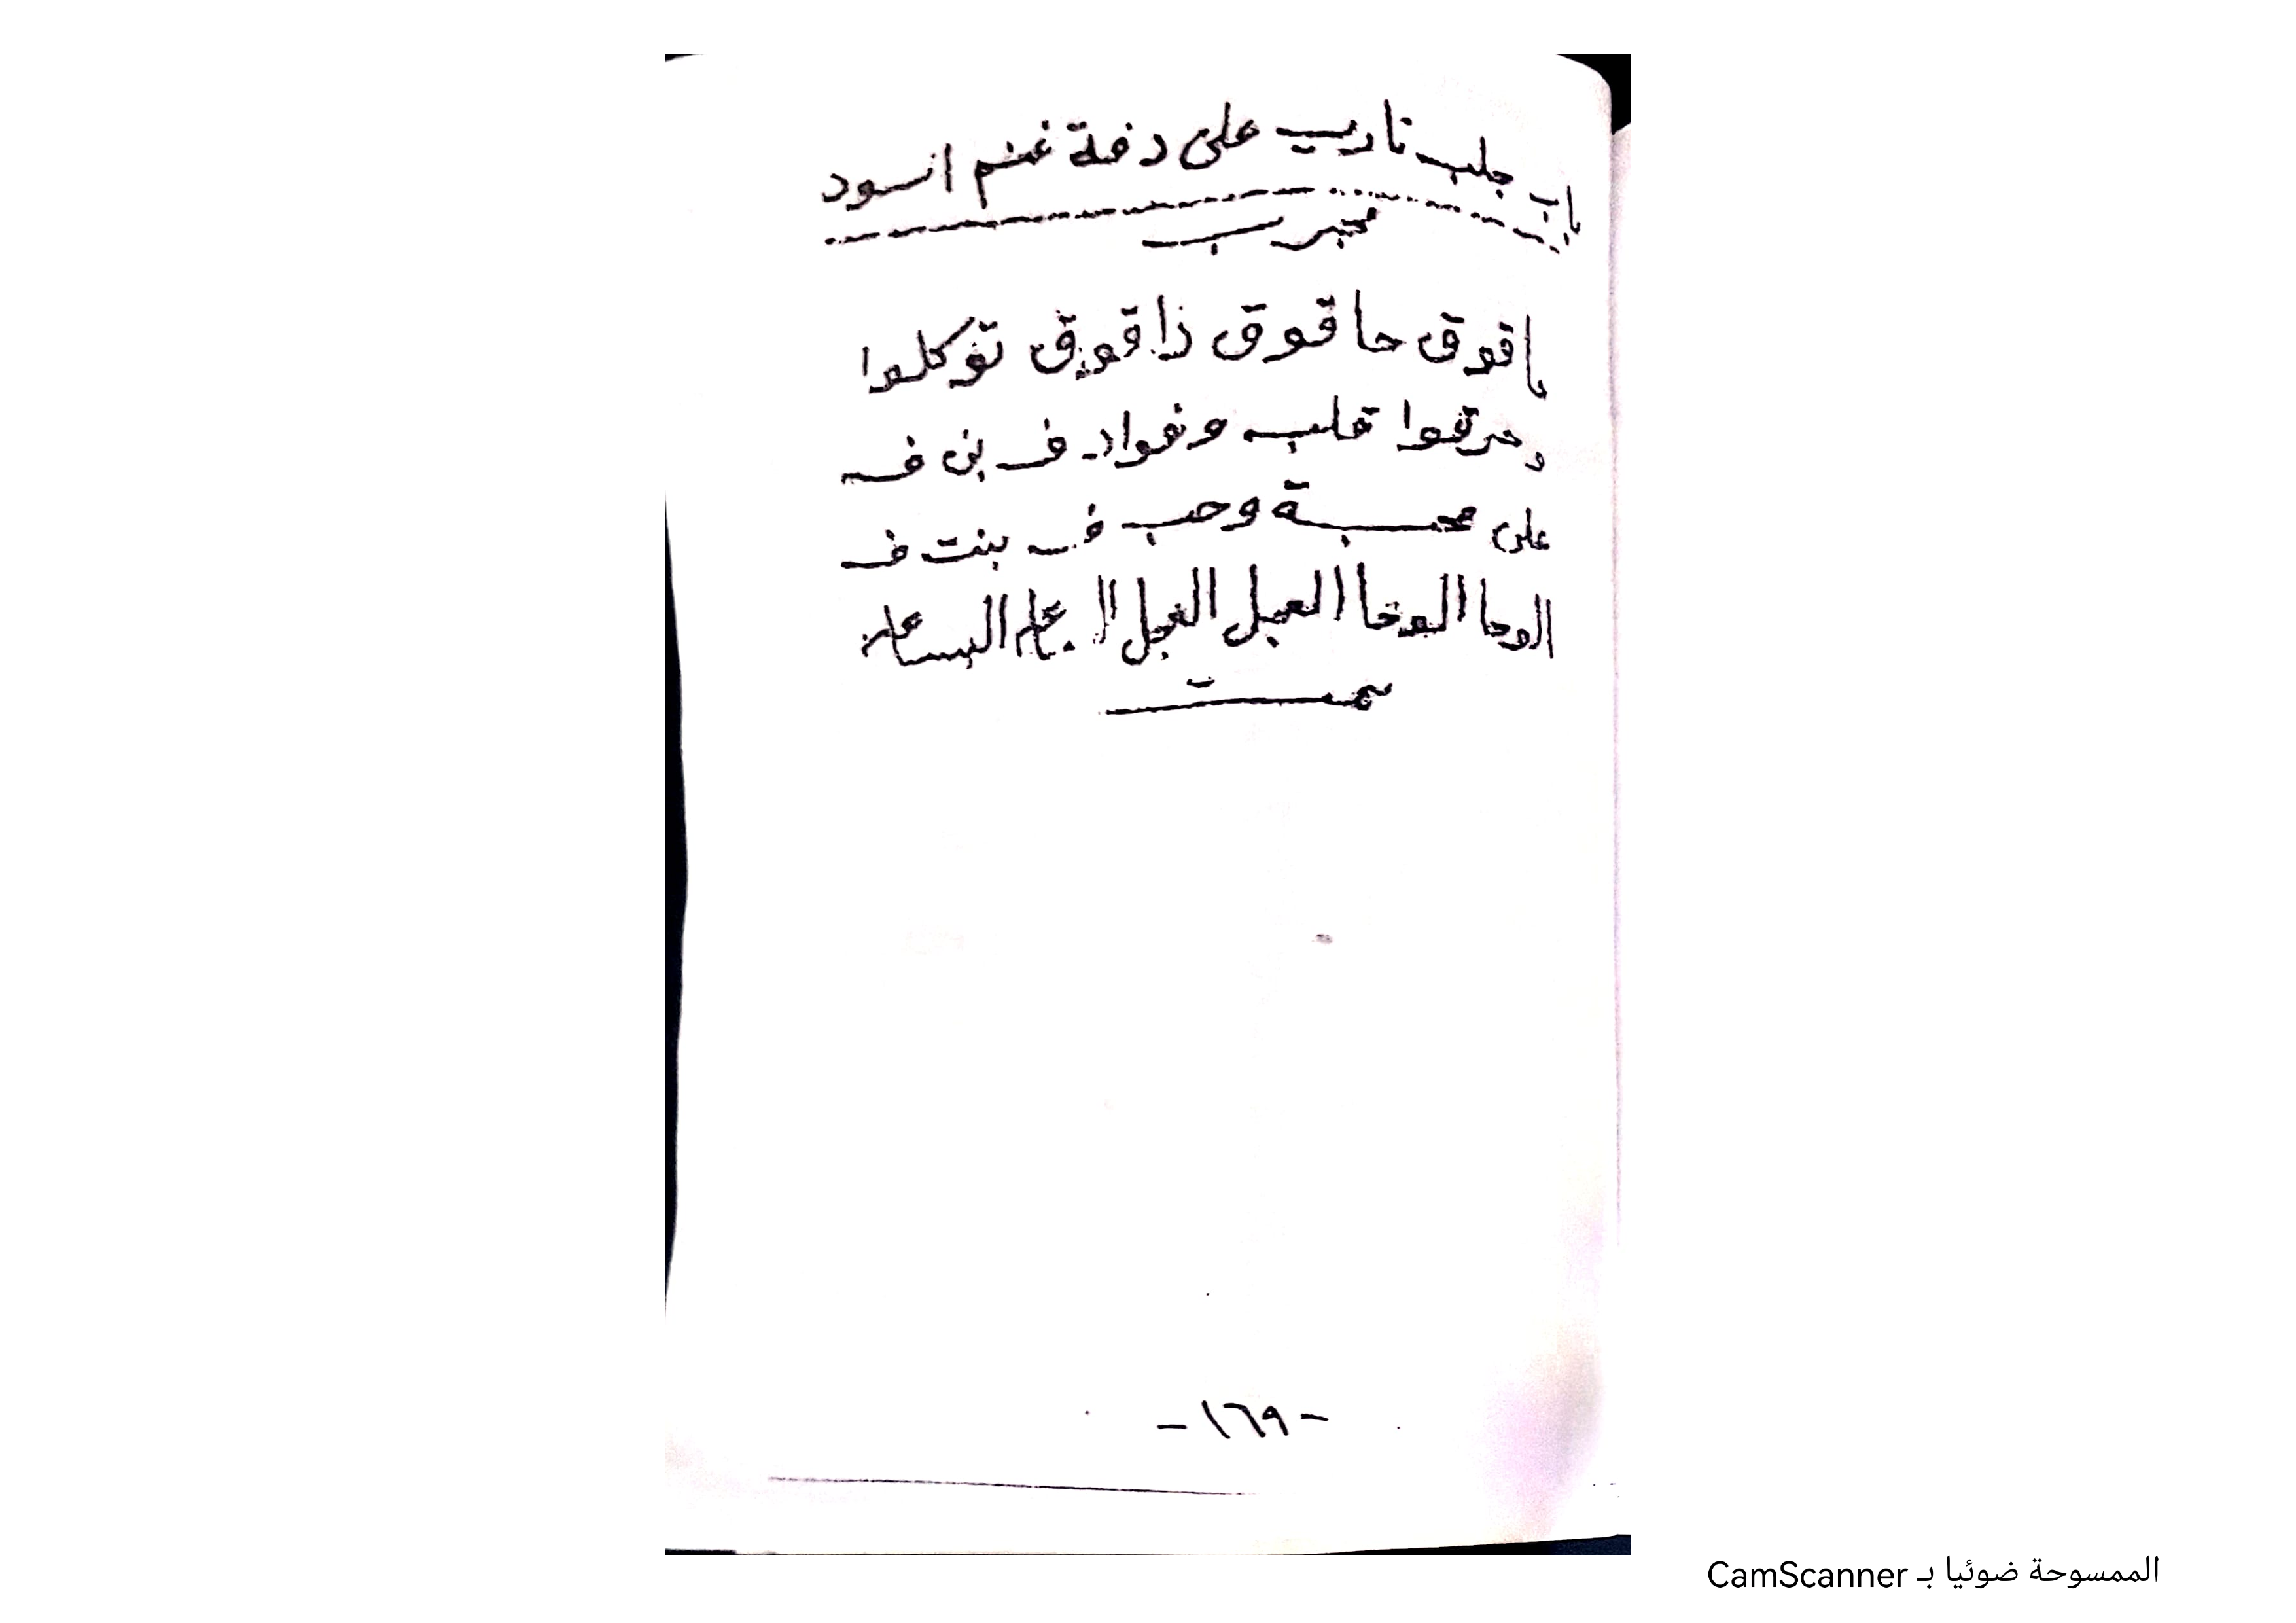 باب جلب ناري على دفة غنم اسود
مجرب
ياقوق حاقوق ذاقوق توكلوا
وحرقوا قلب وفواد ف بن ف
على محبة وحب ف بنت ف
الوحا الوحا العجل العجل الساعة
تمت
-١٦٩-
الممسوحة ضوئيا بـ CamScanner